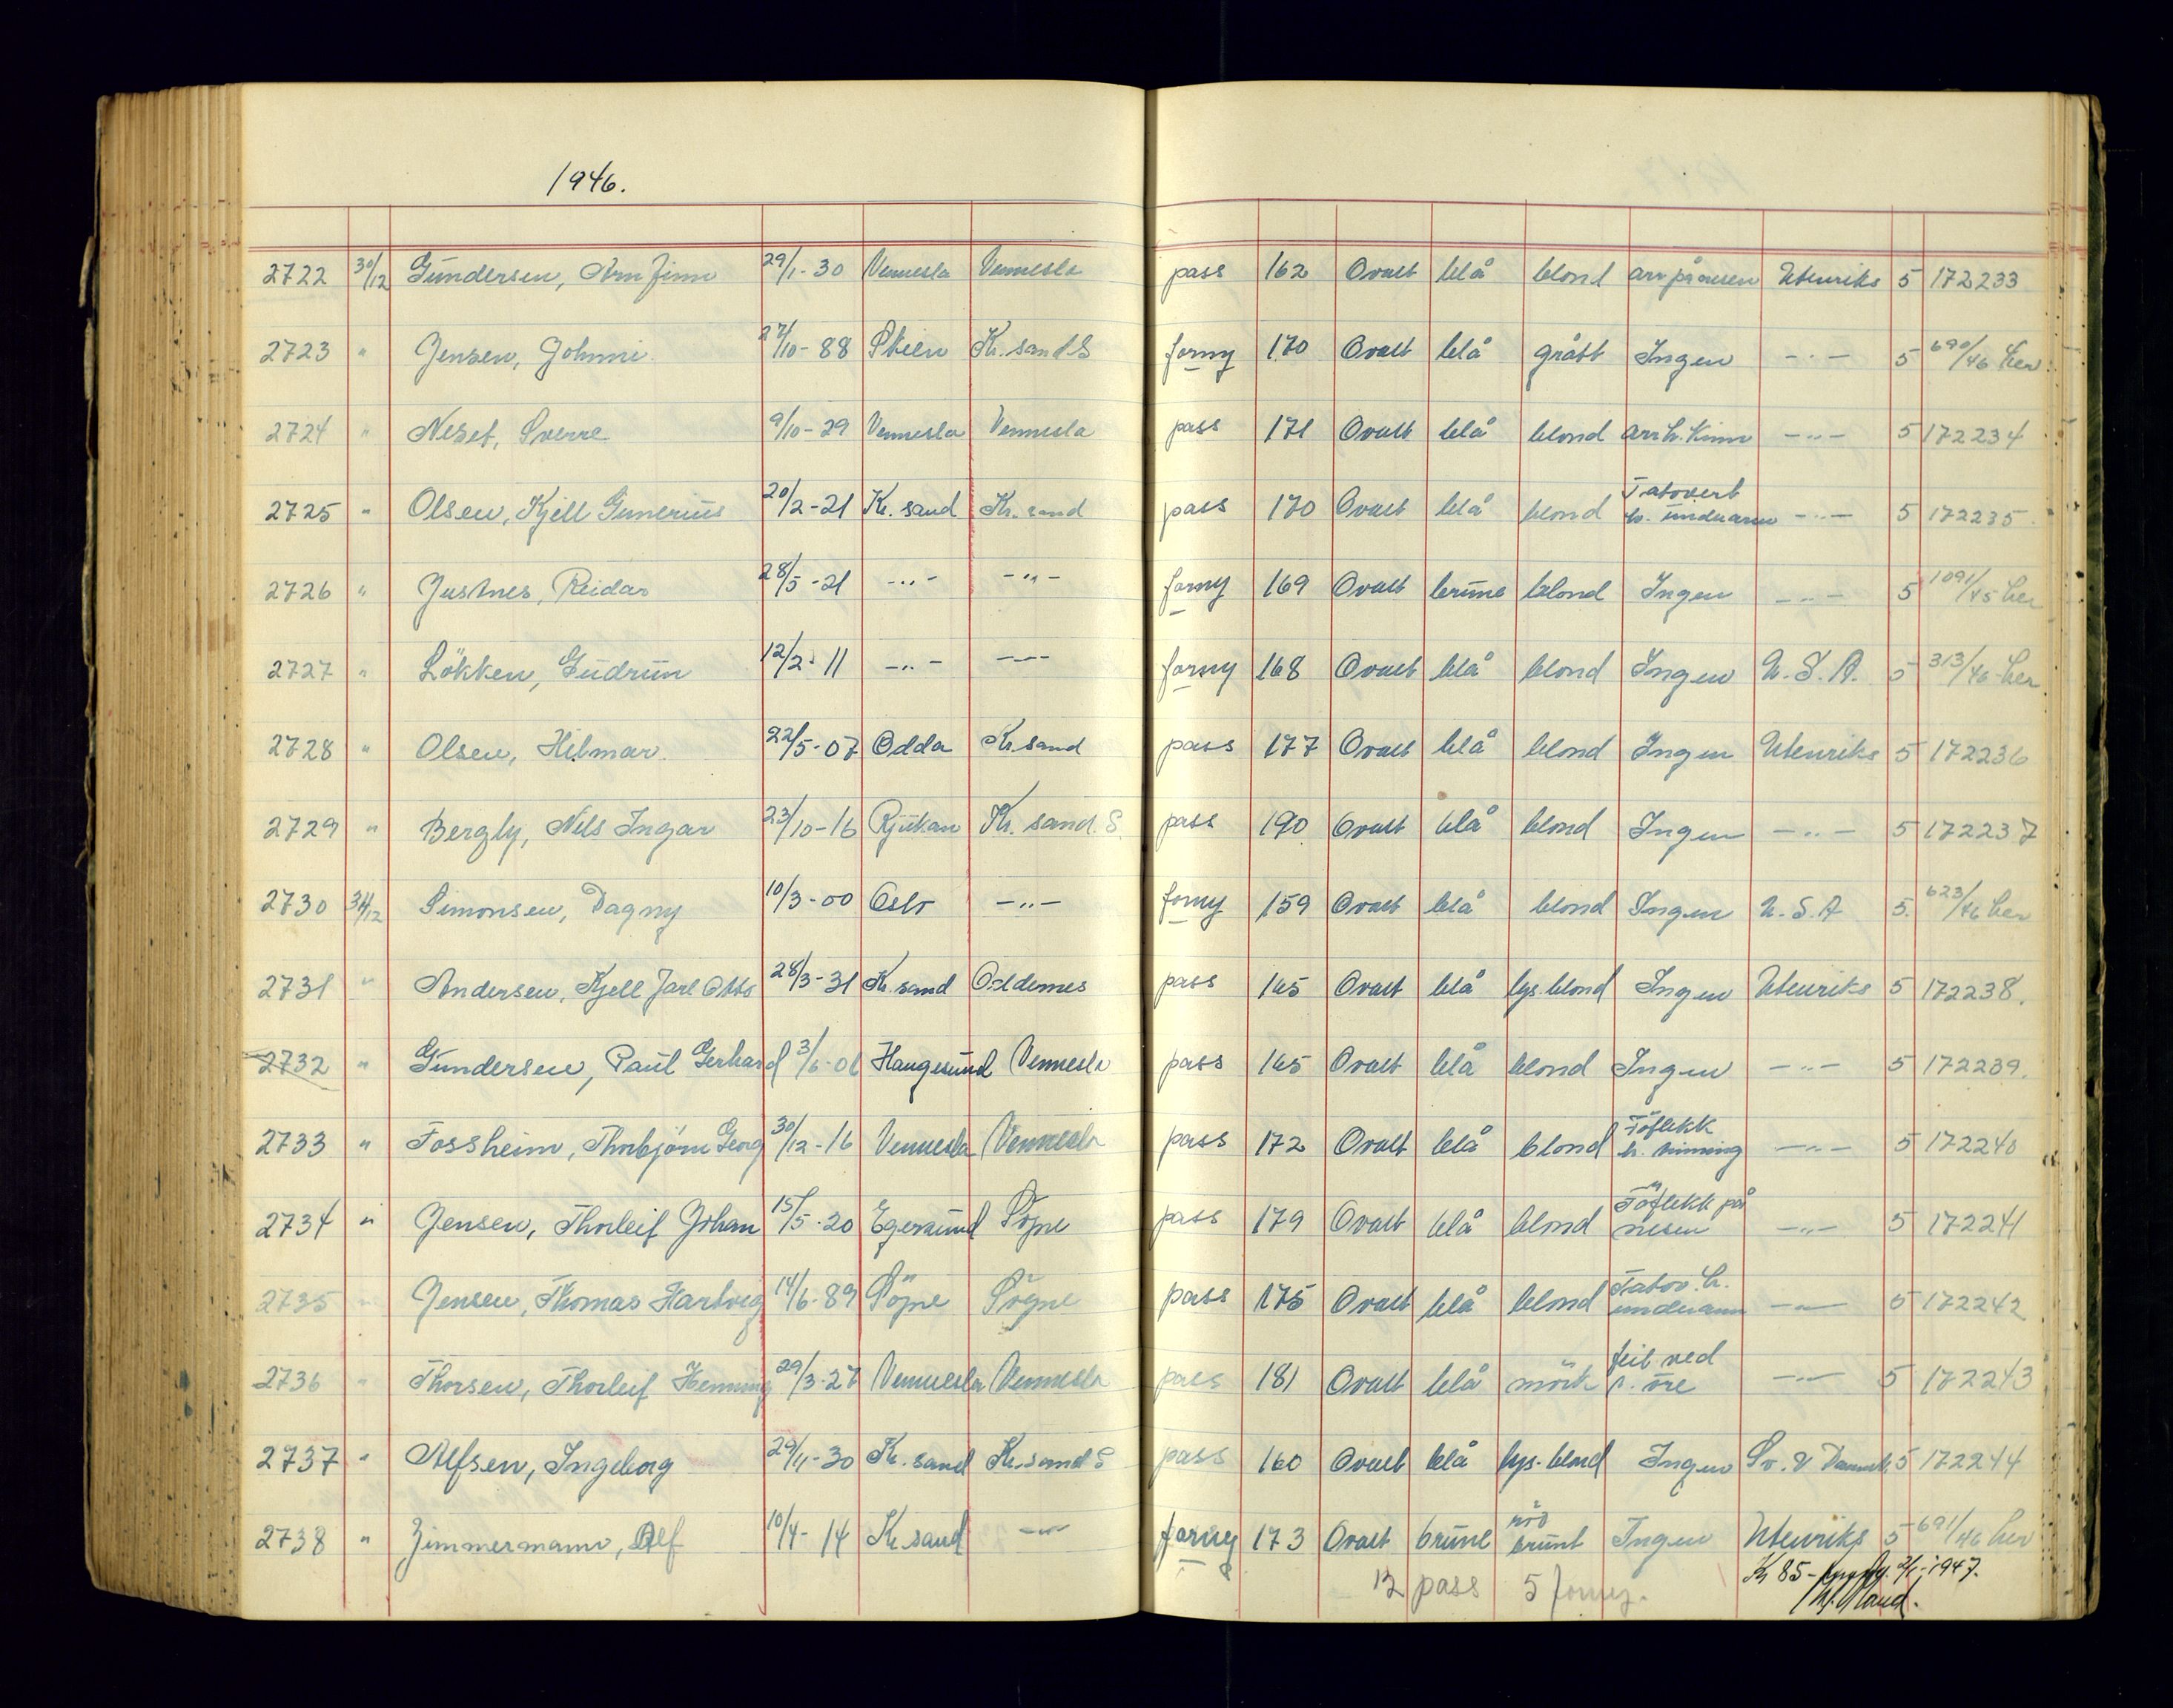 1946.
2722 30/12 Gundersen, Arn Finn 29/1-30 Vennesla Vennesla pass 162 Ovalt blå blond arr på nesen Utenriks 5 172233
2723 " Jensen, Johnni 27/10-88 Skien Kr.sand S forny 170 Ovalt blå grått Ingen -"- 5 690/46 her
2724 " Neset, Sverre 9/10-29 Vennesla Vennesla pass 171 Ovalt blå blond arr h. kinn -"- 5 172234
2725 " Olsen, Kjell Gunerius 20/2-21 Kr.sand Kr.sand pass 170 Ovalt blå blond Tatovert h. underarm -"- 5 172235
2726 " Justnes, Reidar 28/5-21 -"- -"- forny 169 Ovalt brune blond Ingen -"- 5 1091/45 her
2727 " Lökken, Gudrun 12/2-11 -"- -"- forny 168 Ovalt blå blond Ingen U.S.A. 5 313/46 her
2728 " Olsen, Hilmar 22/5-07 Odda Kr.sand pass 177 Ovalt blå blond Ingen Utenriks 5 172236
2729 " Bergly, Nils Ingar 23/10-16 Rjukan Kr.sand.S. pass 190 Ovalt blå blond Ingen -"- 5 172237
2730 31/12 Simonsen, Dagny 10/3-00 Oslo -"- forny 159 Ovalt blå blond Ingen U.S.A 5. 623/46 her
2731 " Andersen, Kjell Jarl Otto 28/3-31 Kr.sand Oddernes pass 165 Ovalt blå lys.blond Ingen Utenriks 5 172238.
2732 " Gundersen, Paul Gerhard 3/6-06 Haugesund Vennesla pass 165 Ovalt blå blond Ingen -"- 5 172239.
2733 " Fossheim, Thorbjörn Georg 30/12-16 Vennesla Vennesla pass 172 Ovalt blå blond Föflekk h. tinning -"- 5 172240
2734 " Jensen, Thorleif Johan 15/5-20 Egersund Sögne pass 179 Ovalt blå blond Föflekk på nesen -"- 5 172241
2735 " Jensen, Thomas Hartvig 14/6-89 Sögne Sögne pass 175 Ovalt blå blond Tatov. h. underarm -"- 5 172242
2736 " Thorsen, Thorleif Henning 29/3-27 Vennesla Vennesla pass 181 Ovalt blå mörk feil ved öre -"- 5 172243
2737 " Alfsen, Ingeborg 29/11-30 Kr.sand Kr.sand S pass 160 Ovalt blå lys-blond Ingen Sv. & Danmk. 5 172244
2738 " Zimmermann, Alf 10/4-14 Kr.sand -"- forny 173 Ovalt brune röd brunt Ingen Utenriks 5 691/46 her
12 pass 5 forny. Kr 85- 2/1-1947.